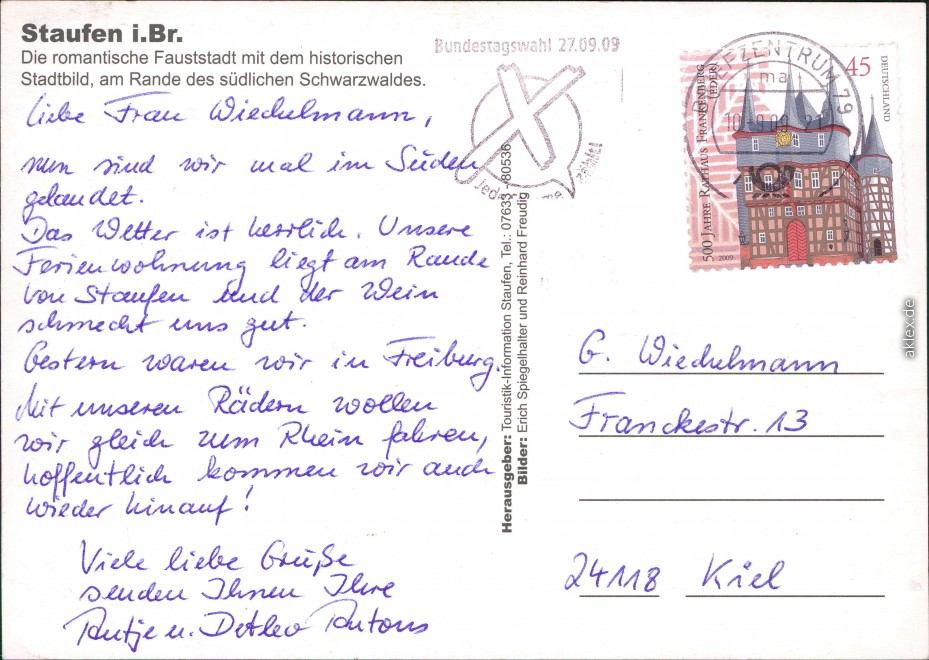 Staufen i.Br.
Die romantische Fauststadt mit dem historischen
Stadtbild, am Rande des südlichen Schwarzwaldes.
Liebe Frau Wiedulmann,
nun sind wir mal im Süden
gelandet.
Das Wetter ist herrlich. Unsere
Ferienwohnung liegt am Rande
von Staufen und der Wein
schmeckt uns gut.
Gestern waren wir in Freiburg.
Mit unseren Rädern wollen
wir gleich zum Rhein fahren,
hoffentlich kommen wir auch
wieder hinauf!
Viele liebe Grüße
senden Ihnen Ihre
Antje u. Detlev Antons
Bundestagswahl 27.09.09
Herausgeber: Touristik-Information Staufen, Tel.: 07633 - 80536
Bilder: Erich Spiegelhalter und Reinhard Freudig
BRIEFZENTRUM 79
ma
500 JAHRE RATHAUS FRANKENBERG
(EDER)
45
DEUTSCHLAND
2009
G. Wiedulmann
Franckestr. 13
24118 Kiel
aklex.de